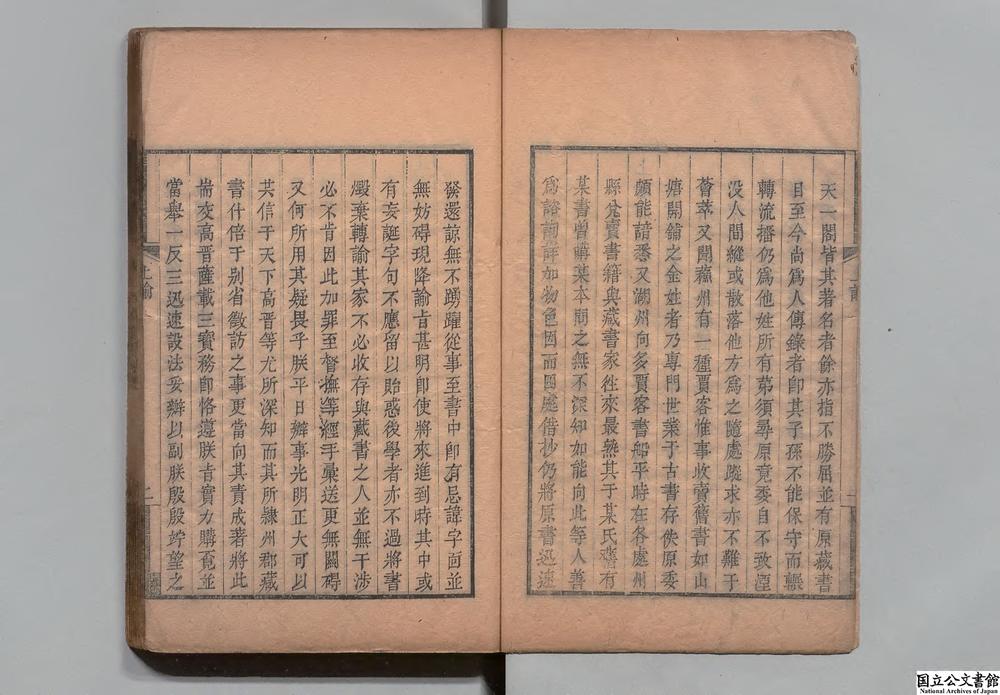 天一閣皆其著名者餘亦指不勝屈並有原藏書
目至今尚爲人傳錄者即其子孫不能保守而輾
轉流播仍爲他姓所有第須尋原竟委自不致湮
没人間縱或散落他方爲之隨處蹤求亦不難于
薈萃又聞蘇州有一種賈客惟事收賣舊書如山
塘開鋪之金姓者乃專門世業于古書存佚原委
頗能諳悉又湖州向多賈客書船平時在各處州
縣兊賣書籍與藏書家徃來最熟其于某氏舊有
某書曾購某本問之無不深知如能向此等人善
爲諮詢詳加物色因而四處借抄仍將原書迅速
發還諒無不踴躍從事至書中即有忌諱字面並
無妨碍現降諭㫖甚明即使將來進到時其中或
有妄誕字句不應留以貽惑後學者亦不過將書
燬棄轉諭其家不必收存與藏書之人並無干涉
必不肯因此加罪至督撫等經手彙送更無關碍
又何所用其疑畏乎朕平日辦事光明正大可以
共信于天下高晉等尤所深知而其所隷州郡藏
書什倍于别省徵訪之事更當向其責成著將此
耑交高晉薩載三寳務即恪遵朕㫖實力購覔並
當舉一反三迅速設法妥辦以副朕殷殷竚望之
上諭
二
国立公文書館
National Archives of Japan